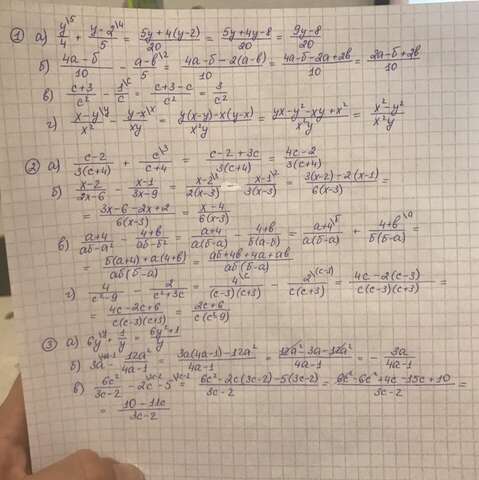 ① а) y\5/4 + y-2\4/5 = 5y+4(y-2)/20 = 5y+4y-8/20 = 9y-8/20
б) 4a-б/10 - a-в\2/5 = 4a-б-2(a-в)/10 = 4a-б-2a+2в/10 = 2a-б+2в/10
в) c+3/c² - 1\c/c = c+3-c/c² = 3/c²
г) x-y\y/x² - y-x\x/xy = y(x-y)-x(y-x)/x²y = yx-y²-xy+x²/x²y = x²-y²/x²y
② а) c-2/3(c+4) + c\3/c+4 = c-2+3c/3(c+4) = 4c-2/3(c+4)
б) x-2/2x-6 - x-1/3x-9 = x-2\3/2(x-3) - x-1\2/3(x-3) = 3(x-2)-2(x-1)/6(x-3) =
= 3x-6-2x+2/6(x-3) = x-4/6(x-3)
в) a+4/aб-a² - 4+б/aб-б² = a+4/a(б-a) - 4+б/б(a-б) = a+4\б/a(б-a) + 4+б\a/б(б-a) =
= б(a+4)+a(4+б)/aб(б-a) = aб+4б+4a+aб/aб(б-a)
г) 4/c²-9 - 2/c²+3c = 4\c/(c-3)(c+3) - 2\(c-3)/c(c+3) = 4c-2(c-3)/c(c-3)(c+3) =
= 4c-2c+6/c(c-3)(c+3) = 2c+6/c(c²-9)
③ а) 6y\y + 1/y = 6y²+1/y
б) 3a\4a-1 - 12a²/4a-1 = 3a(4a-1)-12a²/4a-1 = 12a²-3a-12a²/4a-1 = - 3a/4a-1
в) 6c²/3c-2 - 2c\3c-2 - 5\3c-2 = 6c²-2c(3c-2)-5(3c-2)/3c-2 = 6c²-6c²+4c-15c+10/3c-2 =
= 10-11c/3c-2